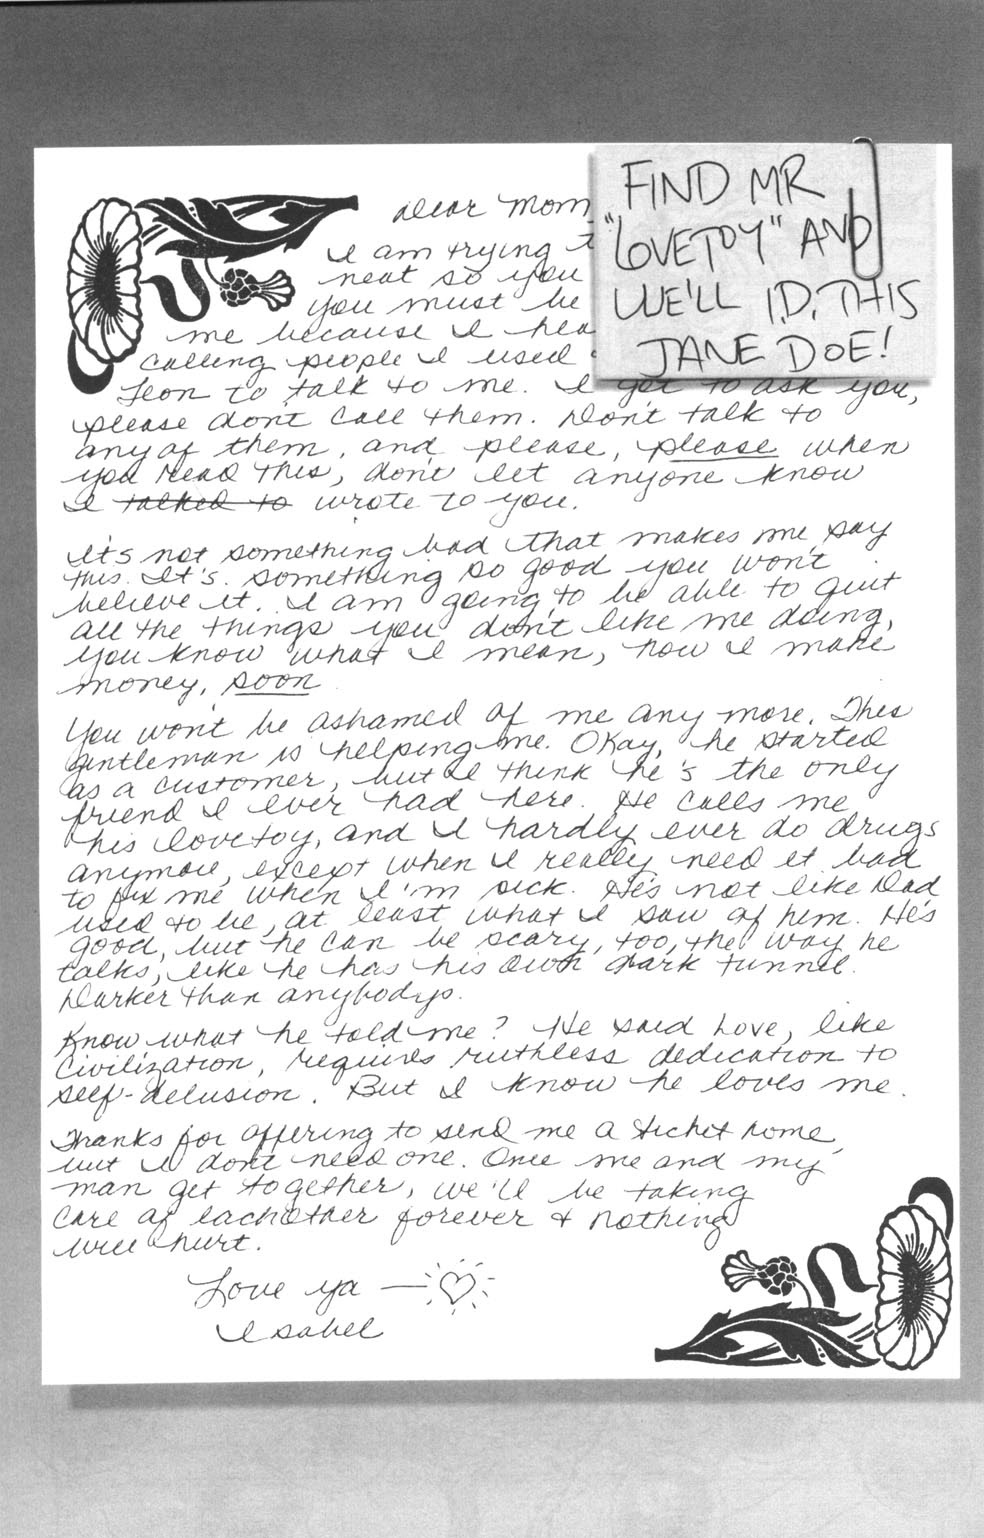 FIND MR
"LOVETOY" AND
WE'LL I.D. THIS
JANE DOE!
Dear Mom
I am trying t
neat so you
you must be
me because I hea
calling people I used
Leon to talk to me. I got to ask you,
please dont call them. Don't talk to
any of them, and please, please when
you read this, don't let anyone know
I talked to wrote to you.
It's not something bad that makes me say
this. It's something so good you won't
believe it. I am going to be able to quit
all the things you don't like me doing,
you know what I mean, how I make
money, soon
You won't be ashamed of me any more. This
gentleman is helping me. Okay, he started
as a customer, but I think he's the only
friend I ever had here. He calls me
his lovetoy, and I hardly ever do drugs
anymore, except when I really need it bad
to fix me when I'm sick. He's not like Dad
used to be, at least what I saw of him. He's
good, but he can be scary, too, the way he
talks, like he has his own dark tunnel.
Darker than anybodys.
Know what he told me? He said Love, like
Civilization, requires ruthless dedication to
self-delusion. But I know he loves me.
Thanks for offering to send me a ticket home,
but I dont need one. Once me and my
man get together, we'll be taking
care of eachother forever & nothing
will hurt.
Love ya —
Isabel